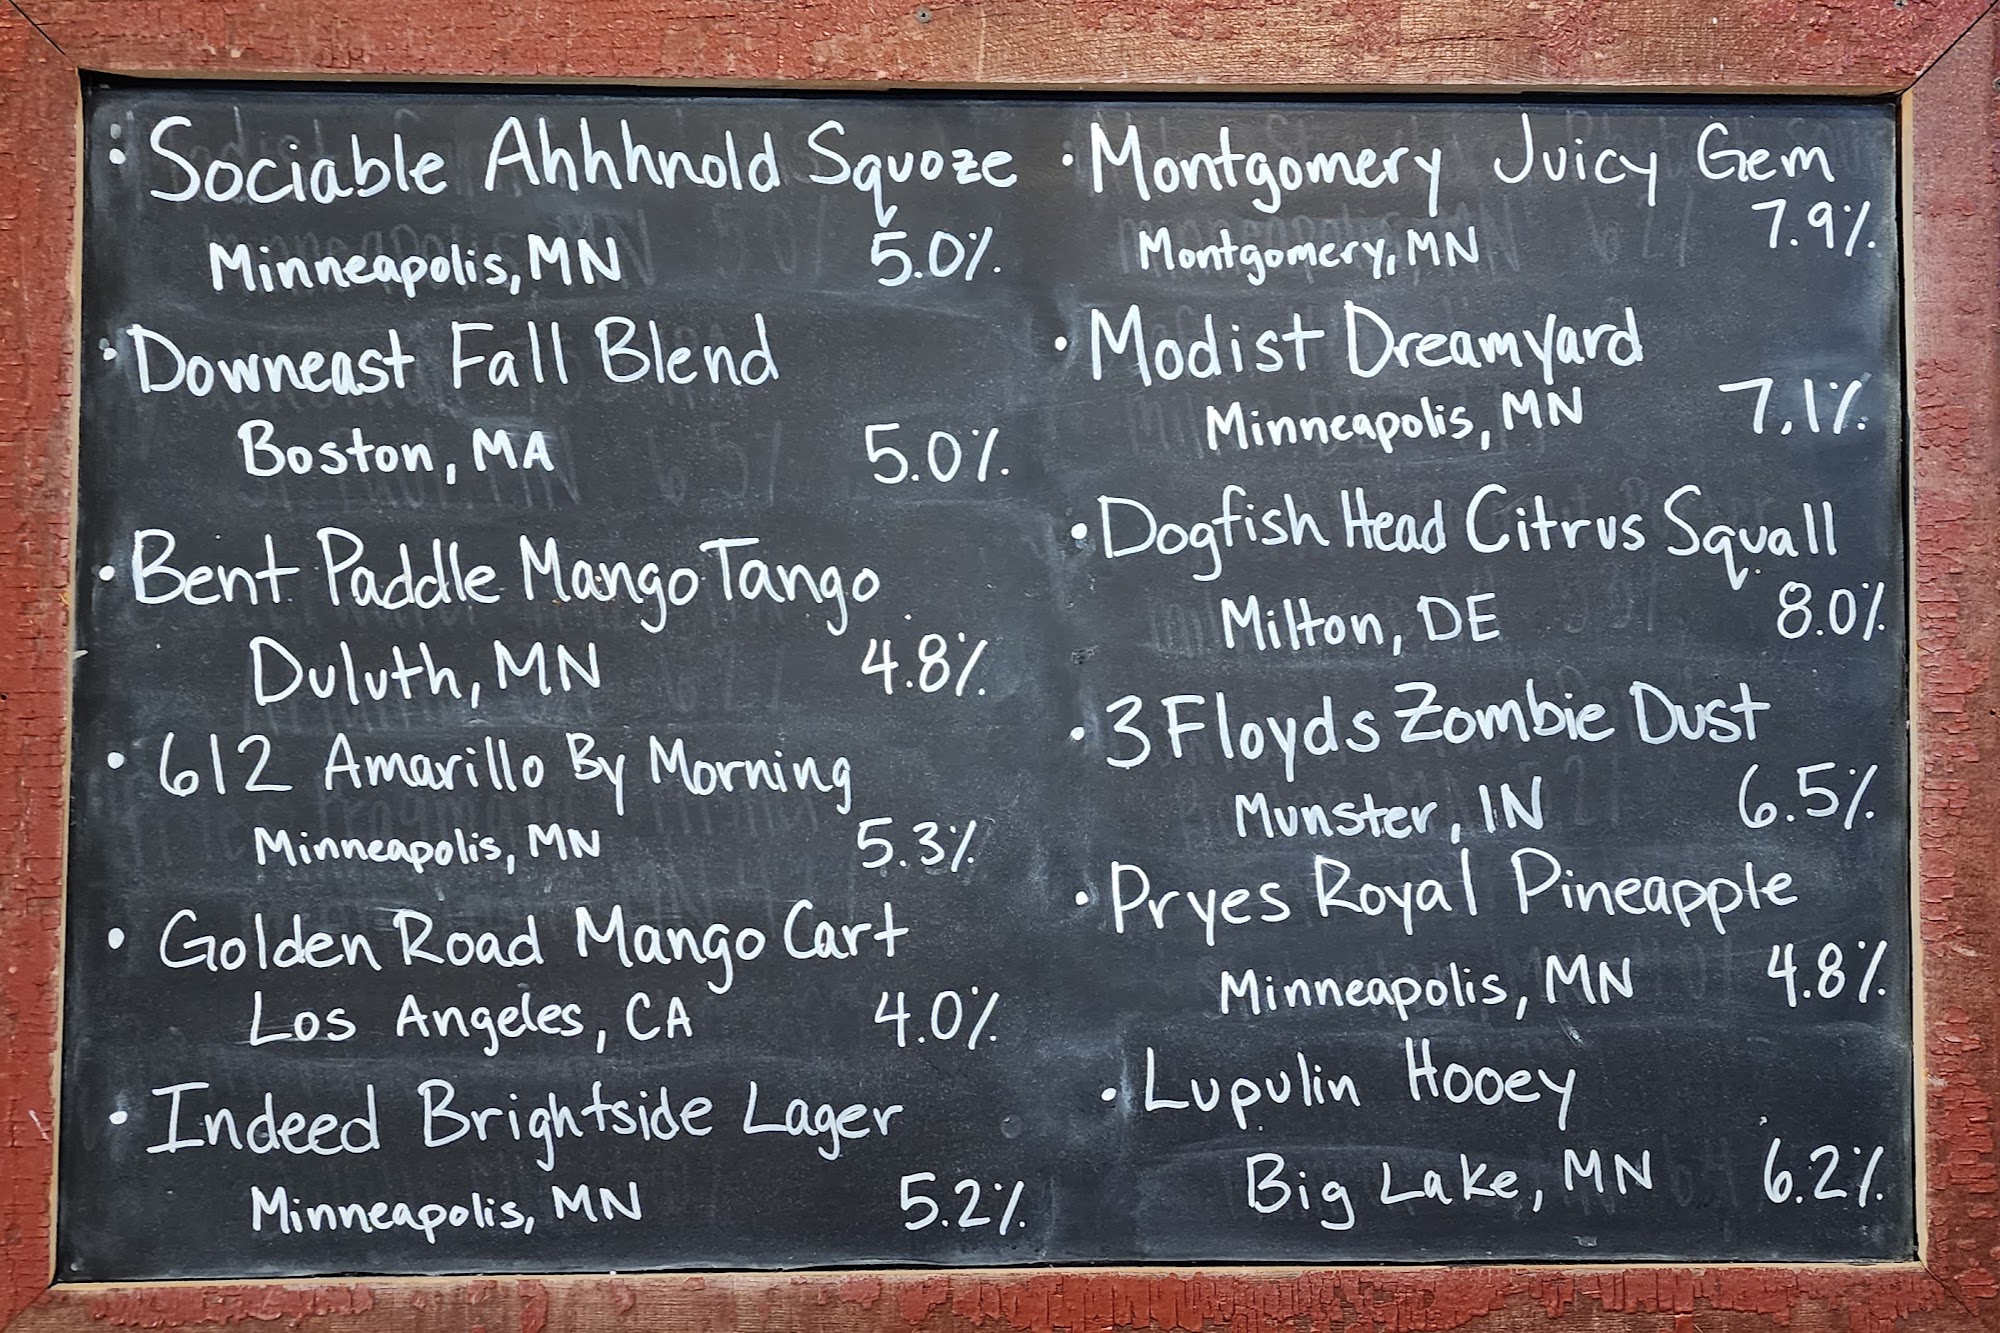 • Sociable Ahhhnold Squoze
Minneapolis, MN 5.0%
• Downeast Fall Blend
Boston, MA 5.0%
• Bent Paddle Mango Tango
Duluth, MN 4.8%
• 612 Amarillo By Morning
Minneapolis, MN 5.3%
• Golden Road Mango Cart
Los Angeles, CA 4.0%
• Indeed Brightside Lager
Minneapolis, MN 5.2%
• Montgomery Juicy Gem
Montgomery, MN 7.9%
• Modist Dreamyard
Minneapolis, MN 7.1%
• Dogfish Head Citrus Squall
Milton, DE 8.0%
• 3 Floyds Zombie Dust
Munster, IN 6.5%
• Pryes Royal Pineapple
Minneapolis, MN 4.8%
• Lupulin Hooey
Big Lake, MN 6.2%